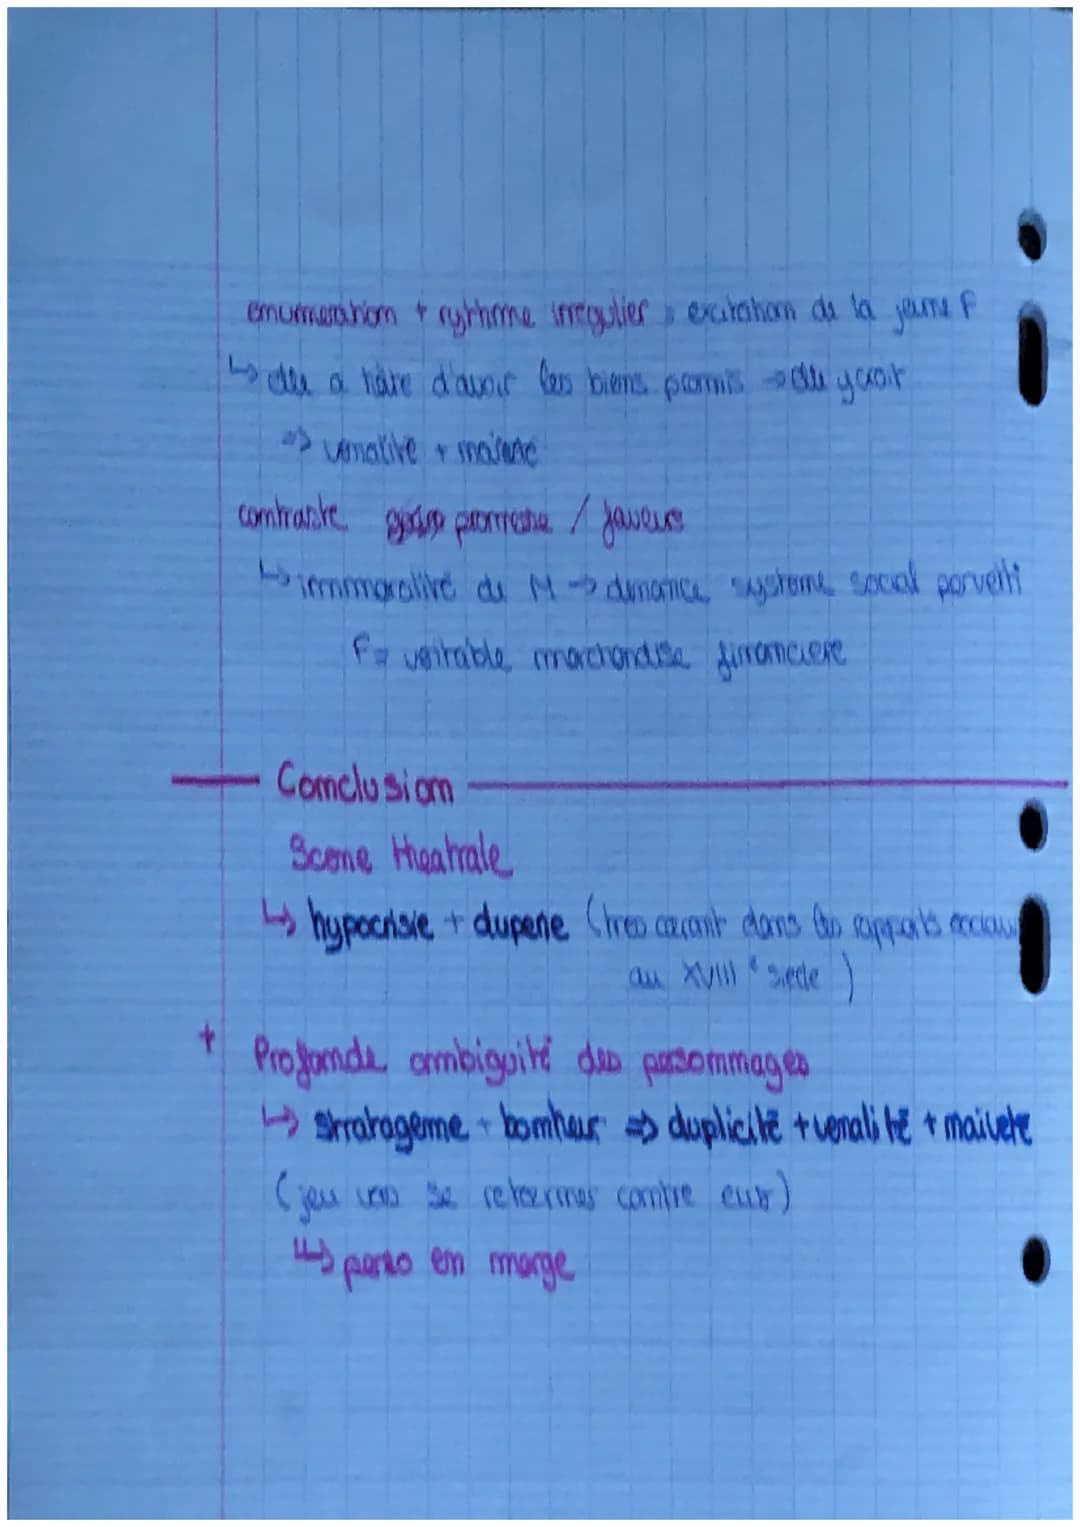 enumeration + rythme irregulier = excitation de la jeune F
↳ elle a hâte d'avoir les biens promis → elle y croit
⇒ venalité + naiveté
contraste promesse / faveurs
↳ immoralité de M → dénonce systeme social perverti
F = veritable marchandise financiere
Conclusion
Scene theatrale
↳ hypocrisie + duperie (tres courant dans les rapports sociaux
au XVIII e siecle)
+ Profonde ambiguité des personnages
↳ stratageme + bonheur ⇒ duplicité + venalité + naivete
(jeu vas se retourner contre eux)
↳ perso en marge